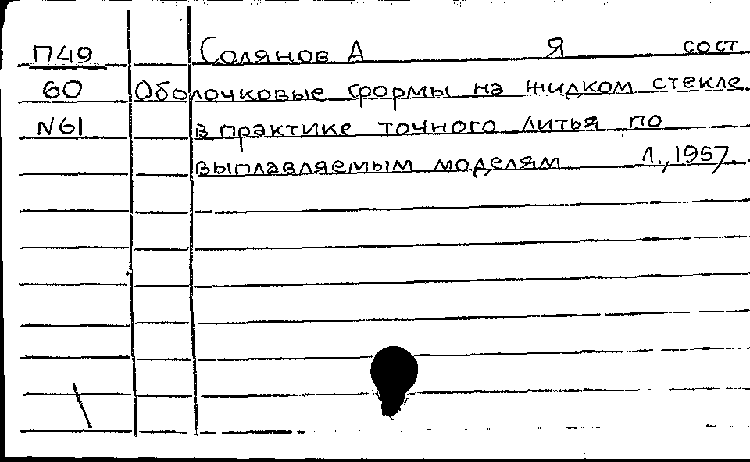 П49 Солянов А Я сост
60 Оболочковые формы на жидком стекле
N61 в практике точного литья по
выплавляемым моделям Л., 1957